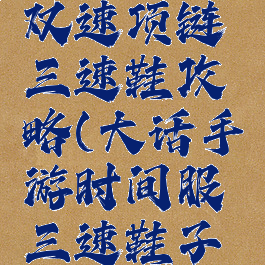 双速项链
三速鞋攻
略(大话手
游时间服
三速鞋子